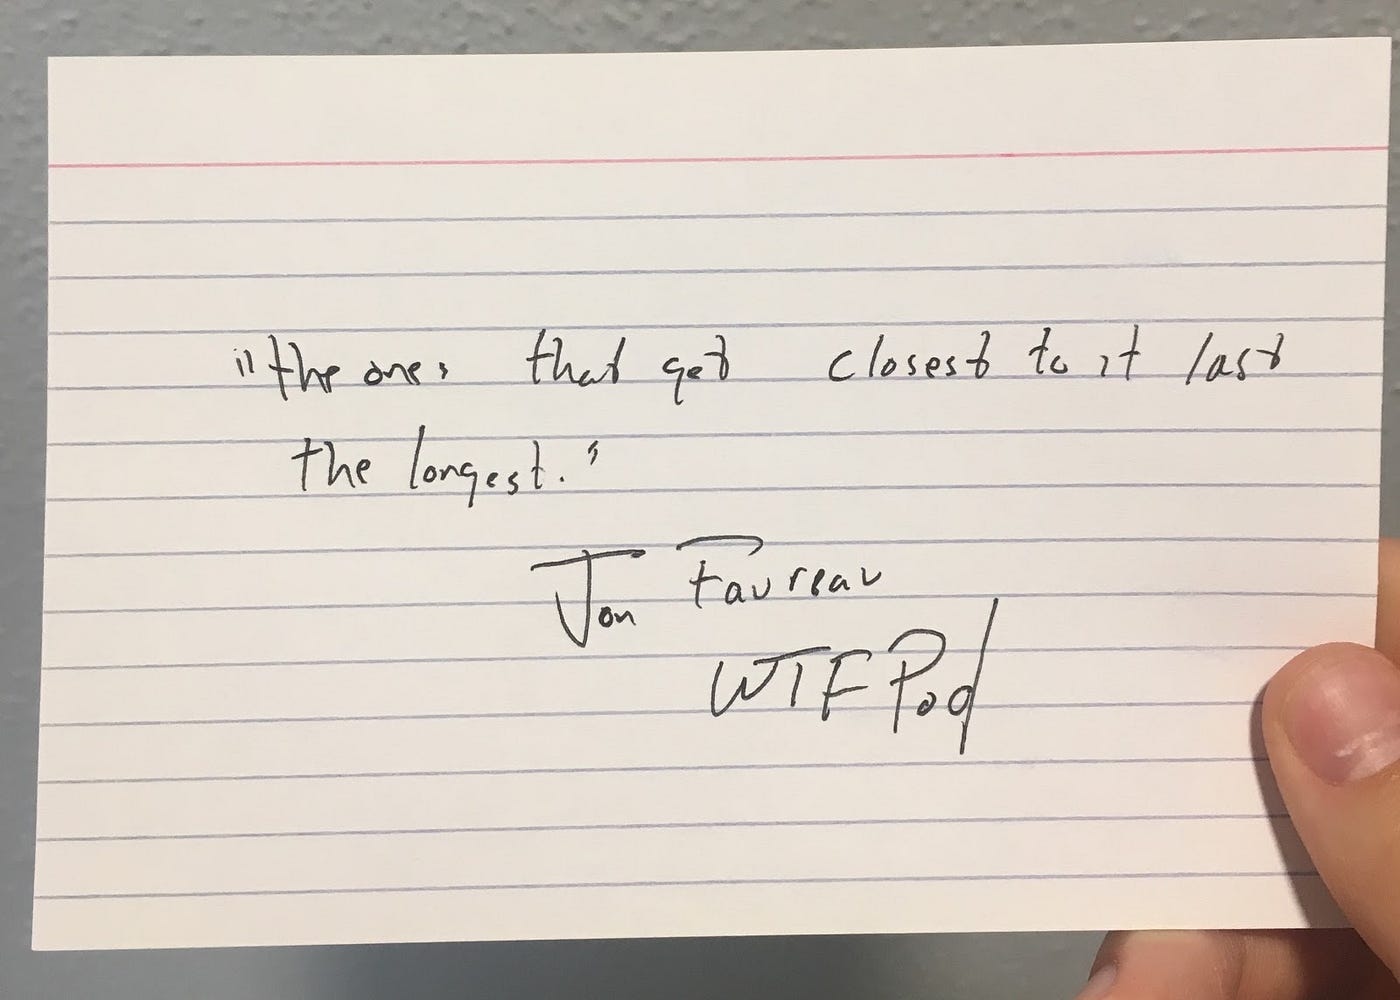 "the ones that get closest to it last
the longest."
Jon Favreau
WTF Pod